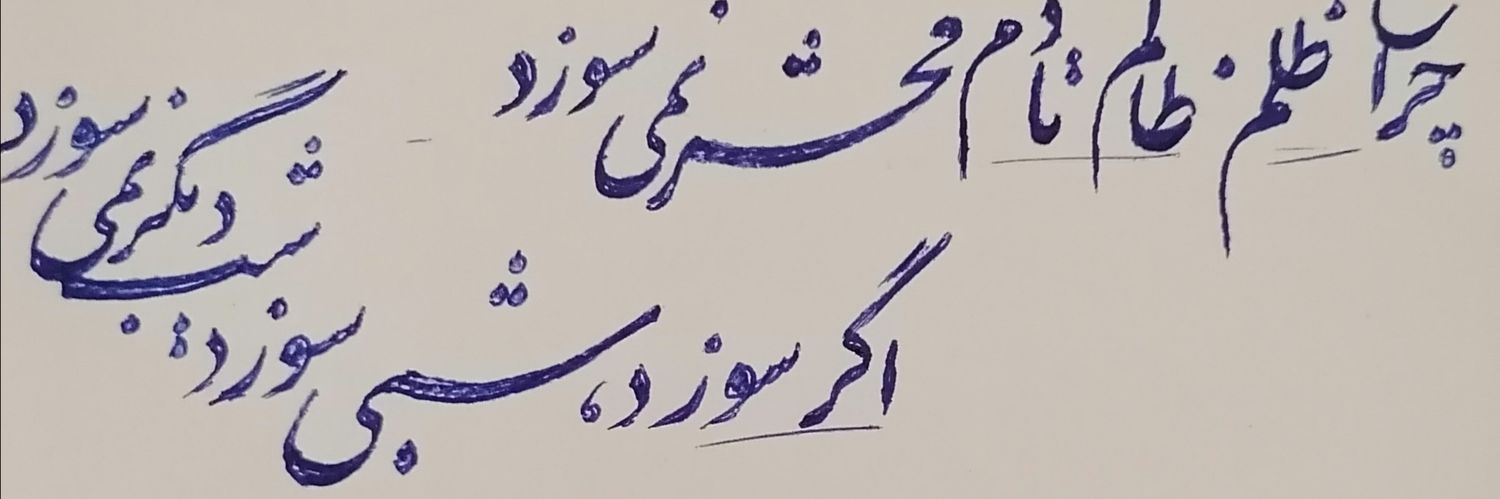 چراغ ظلم ظالم تا دم محشر نمی سوزد
اگر سوزد، شبی سوزد: شب دیگر نمی سوزد